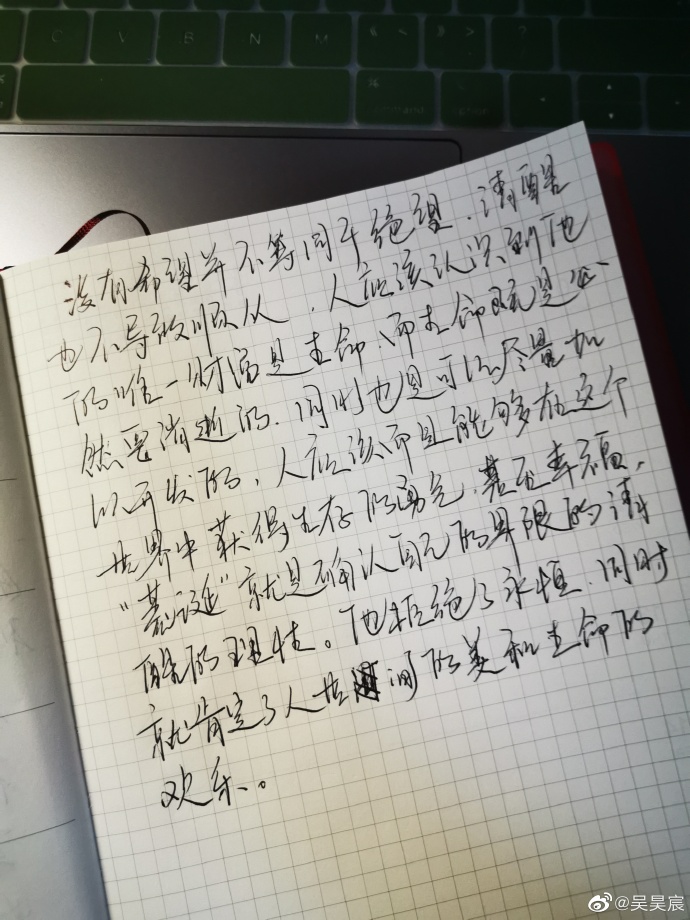 C V B N M
⌘ command option
没有希望并不等同于绝望,清醒
也不导致顺从,人应该认识到他
的唯一财富是生命,而生命既是必
然要消逝的,同时也是可以尽量加
以开发的,人应该而且能够在这个
世界中获得生存的勇气,甚至幸福,
“荒诞”就是确认自己的界限的清
醒的理性。他拒绝了永恒,同时
就肯定了人世间的美和生命的
欢乐。
@吴昊宸